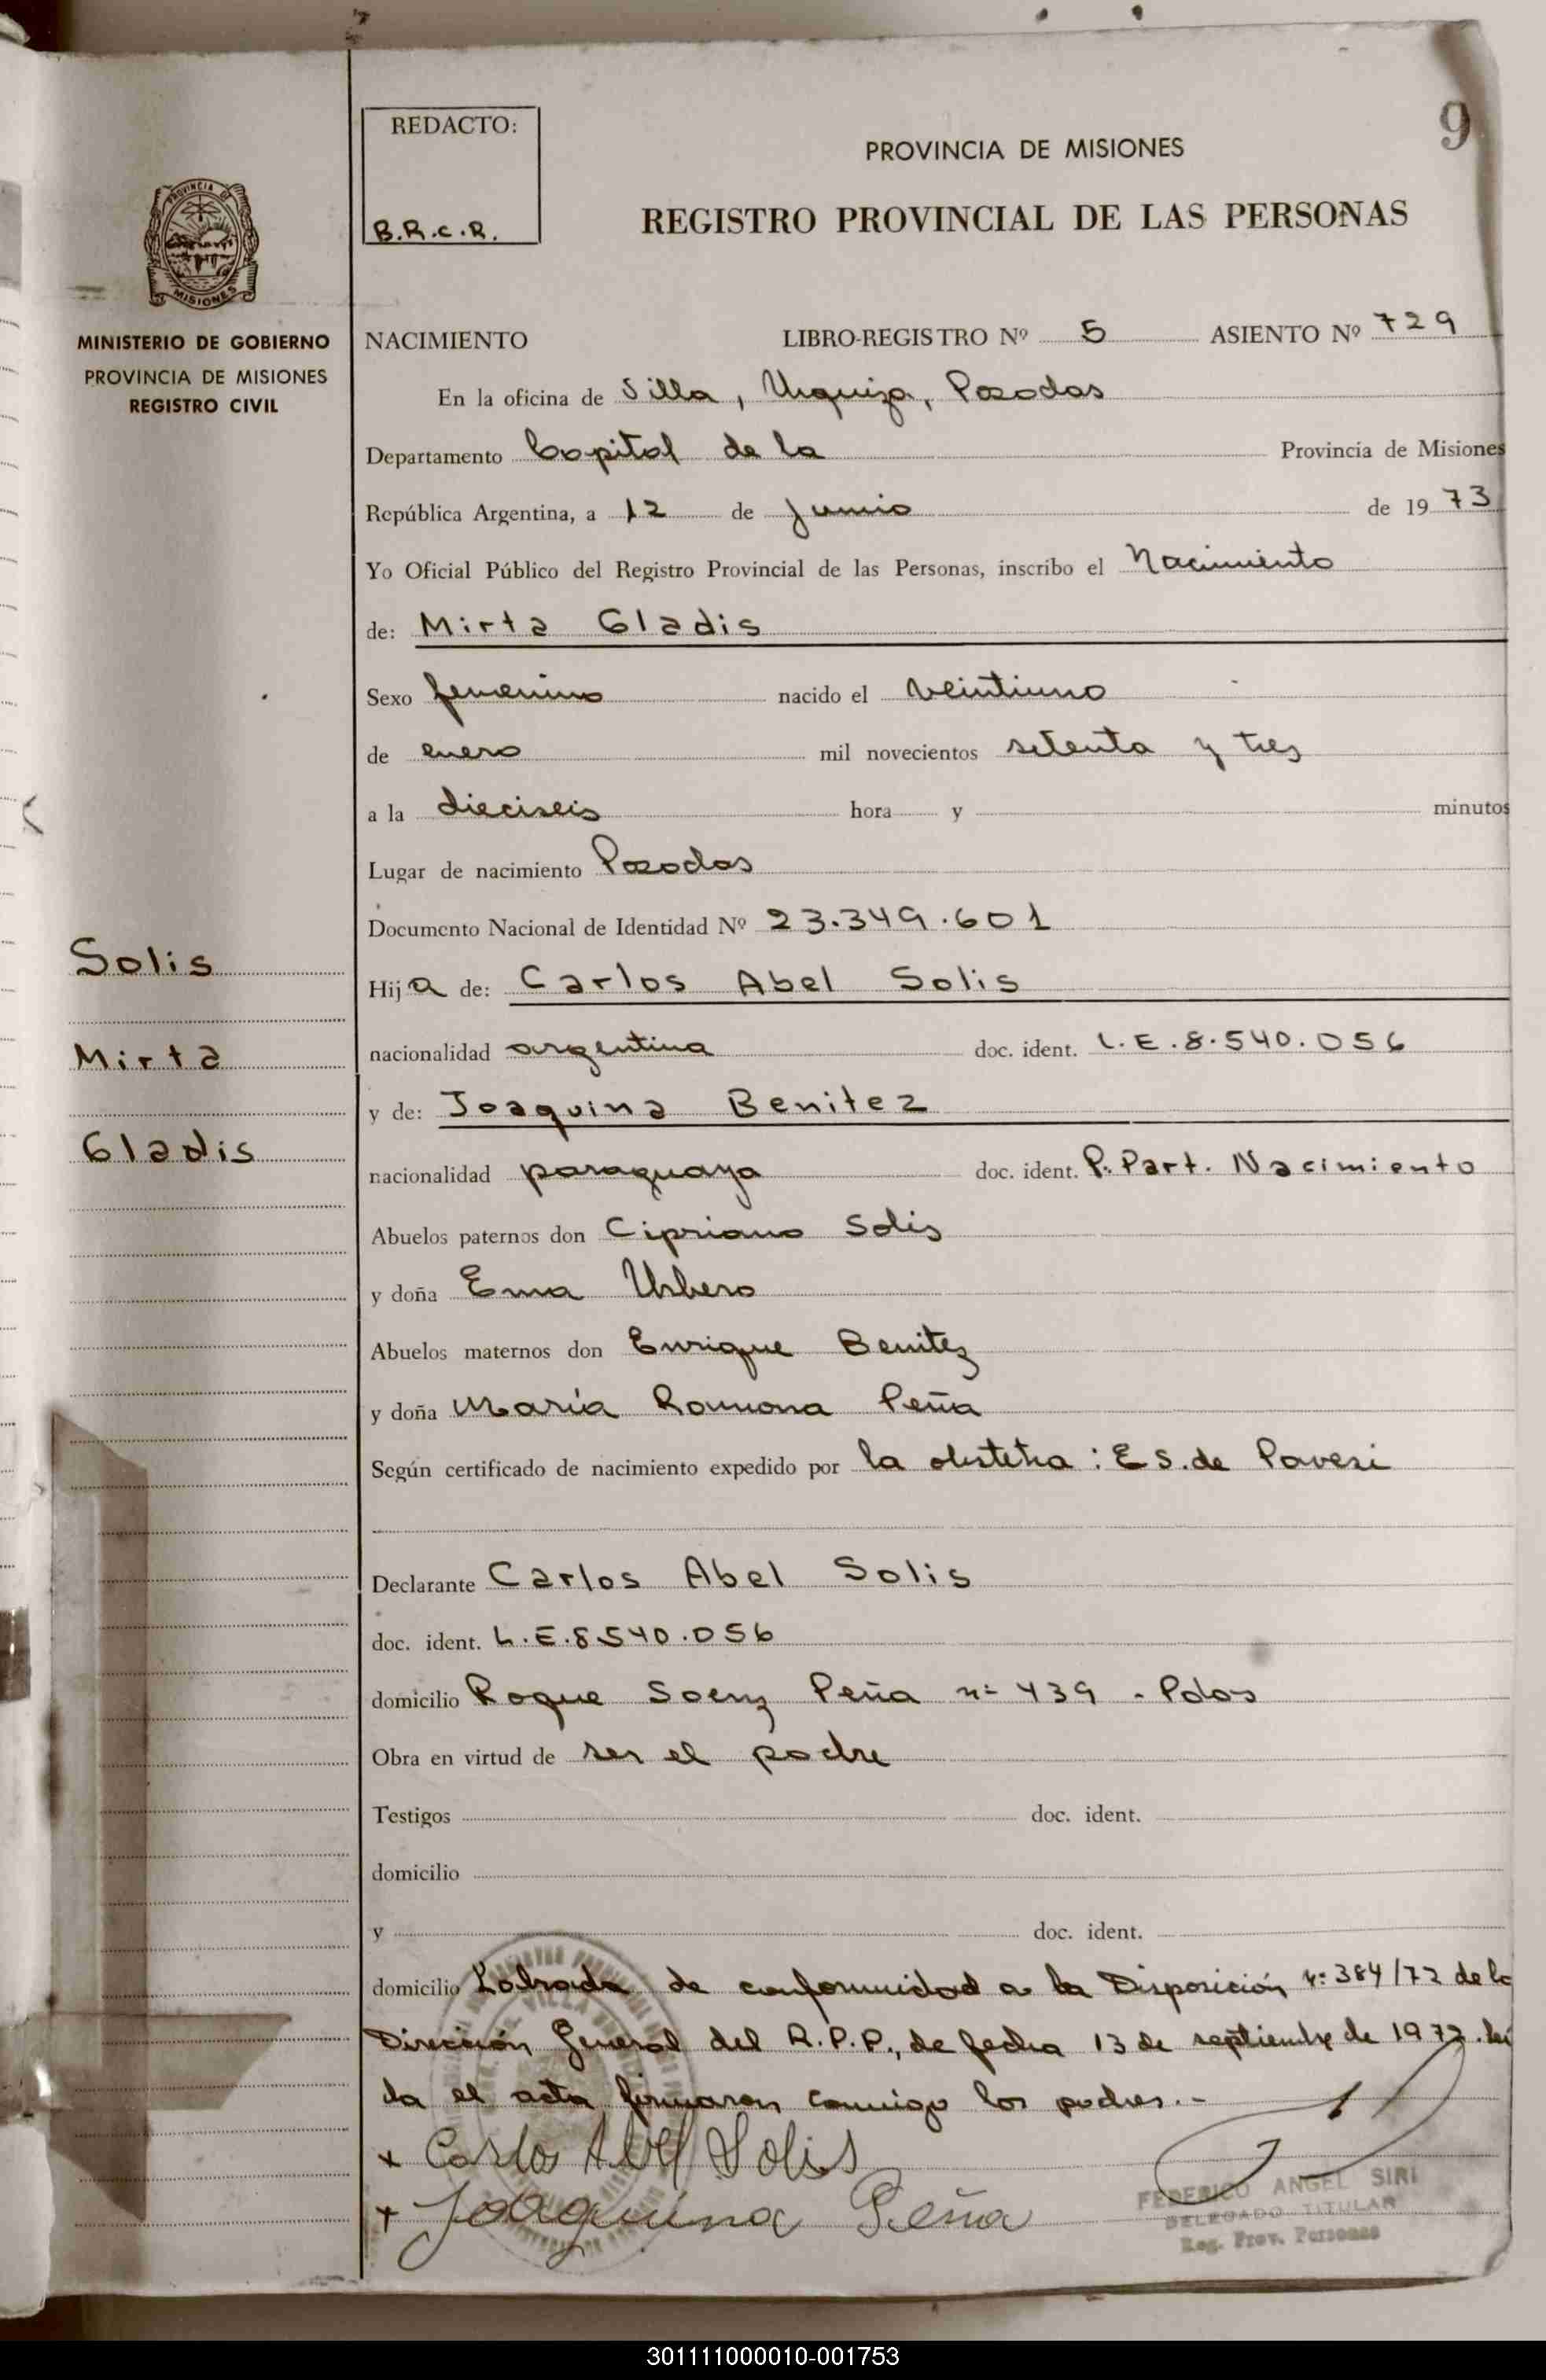 9
REDACTO:
B.R.C.R.
PROVINCIA DE MISIONES
REGISTRO PROVINCIAL DE LAS PERSONAS
PROVINCIA DE
MISIONES
MINISTERIO DE GOBIERNO
PROVINCIA DE MISIONES
REGISTRO CIVIL
NACIMIENTO LIBRO-REGISTRO Nº 5 ASIENTO Nº 729
En la oficina de Villa, Urquiza, Posadas
Departamento Capital de la Provincia de Misiones
República Argentina, a 12 de junio de 1973
Yo Oficial Público del Registro Provincial de las Personas, inscribo el Nacimiento
de: Mirta Gladis
Sexo femenino nacido el veintiuno
de enero mil novecientos setenta y tres
a la dieciseis hora y minutos
Lugar de nacimiento Posadas
Documento Nacional de Identidad Nº 23.349.601
Solis
Hija de: Carlos Abel Solis
Mirta
nacionalidad argentina doc. ident. L.E.8.540.056
y de: Joaquina Benitez
Gladis
nacionalidad paraguaya doc. ident. P. Part. Nacimiento
Abuelos paternos don Cipriano Solis
y doña Ema Urbero
Abuelos maternos don Enrique Benitez
y doña María Ramona Peña
Según certificado de nacimiento expedido por la obstetra: E S. de Pavesi
Declarante Carlos Abel Solis
doc. ident. L.E.8540.056
domicilio Roque Saenz Peña nº 439 - Pdas
Obra en virtud de ser el padre
Testigos doc. ident.
domicilio
y doc. ident.
domicilio Labrada de conformidad a la Disposición nº 384/72 de la
Dirección General del R.P.P., de fecha 13 de septiembre de 1972. Leí
da el acta firmaron conmigo los padres.-
x Carlos Abel Solis
x Joaquina Peña
FEDERICO ANGEL SIRI
DELEGADO TITULAR
Reg. Prov. Personas
301111000010-001753